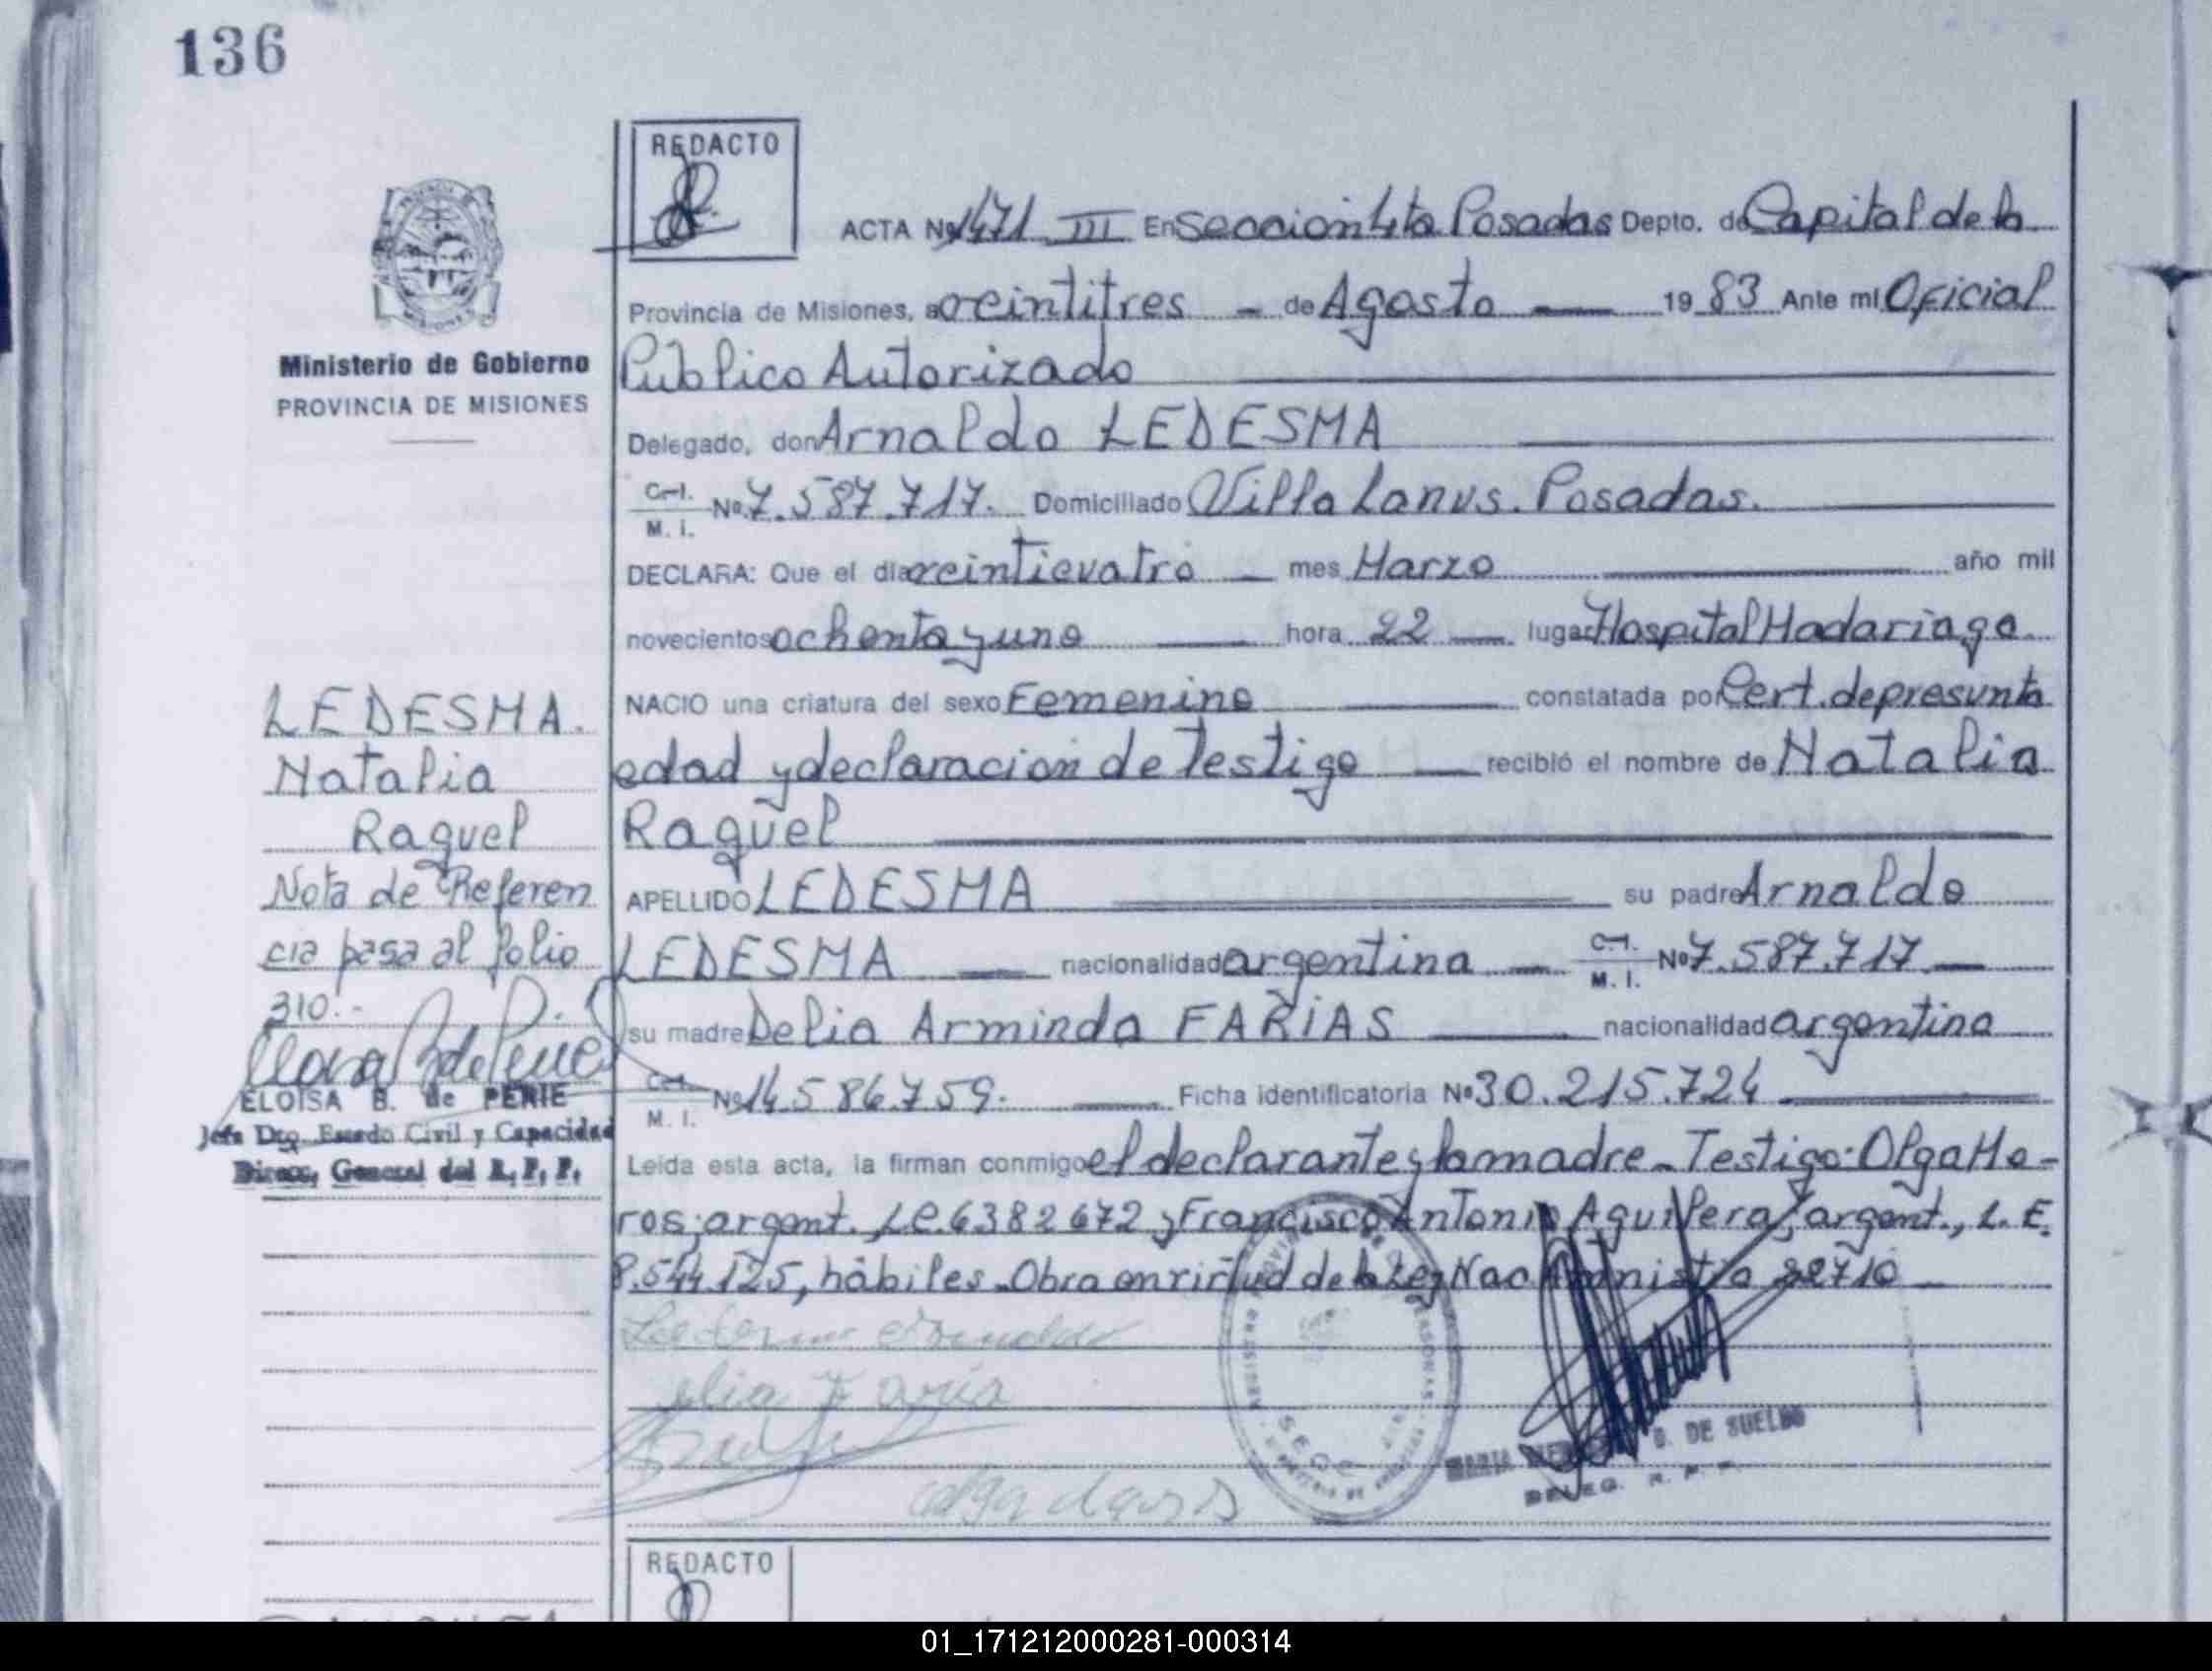 136
REDACTO
ACTA Nº 1471 III En Sección 4ta Posadas Depto. de Capital de la
Provincia de Misiones, a veintitres - de Agosto — 19 83 Ante mí Oficial
Público Autorizado
Ministerio de Gobierno
PROVINCIA DE MISIONES
Delegado, don Arnaldo LEDESMA
C.I. M.I. Nº 7.587.717. Domiciliado Villa Lanus. Posadas.
DECLARA: Que el día veinticuatro — mes Marzo — año mil
novecientos ochenta y uno — hora 22 — lugar Hospital Madariaga
NACIO una criatura del sexo Femenino — constatada por Cert. de presunta
edad y declaración de Testigo — recibió el nombre de Natalia
Raquel
APELLIDO LEDESMA — su padre Arnaldo
LEDESMA — nacionalidad argentina — C.I. M.I. Nº 7.587.717 —
su madre Delia Arminda FARIAS — nacionalidad argentina
C.I. M.I. Nº 14586.759. — Ficha identificatoria Nº 30.215.724
Leída esta acta, la firman conmigo el declarante y la madre - Testigo: Olga Mo-
ros; argent. L.C. 6382672 y Francisco Antonio Aguilera, argent., L.E.
8.544.125, hábiles - Obra en virtud de la Ley Nac 22710
LEDESMA.
Natalia
Raquel
Nota de Referen
cia pasa al folio
310.-
ELOISA B. de PERIE
Jefa Dto. Estado Civil y Capacidad
Direcc, General del R, P, P,
Ledesma Arnaldo
elia Faria
B. DE SUELDO
DELEG. R. P. P.
REDACTO
01_171212000281-000314